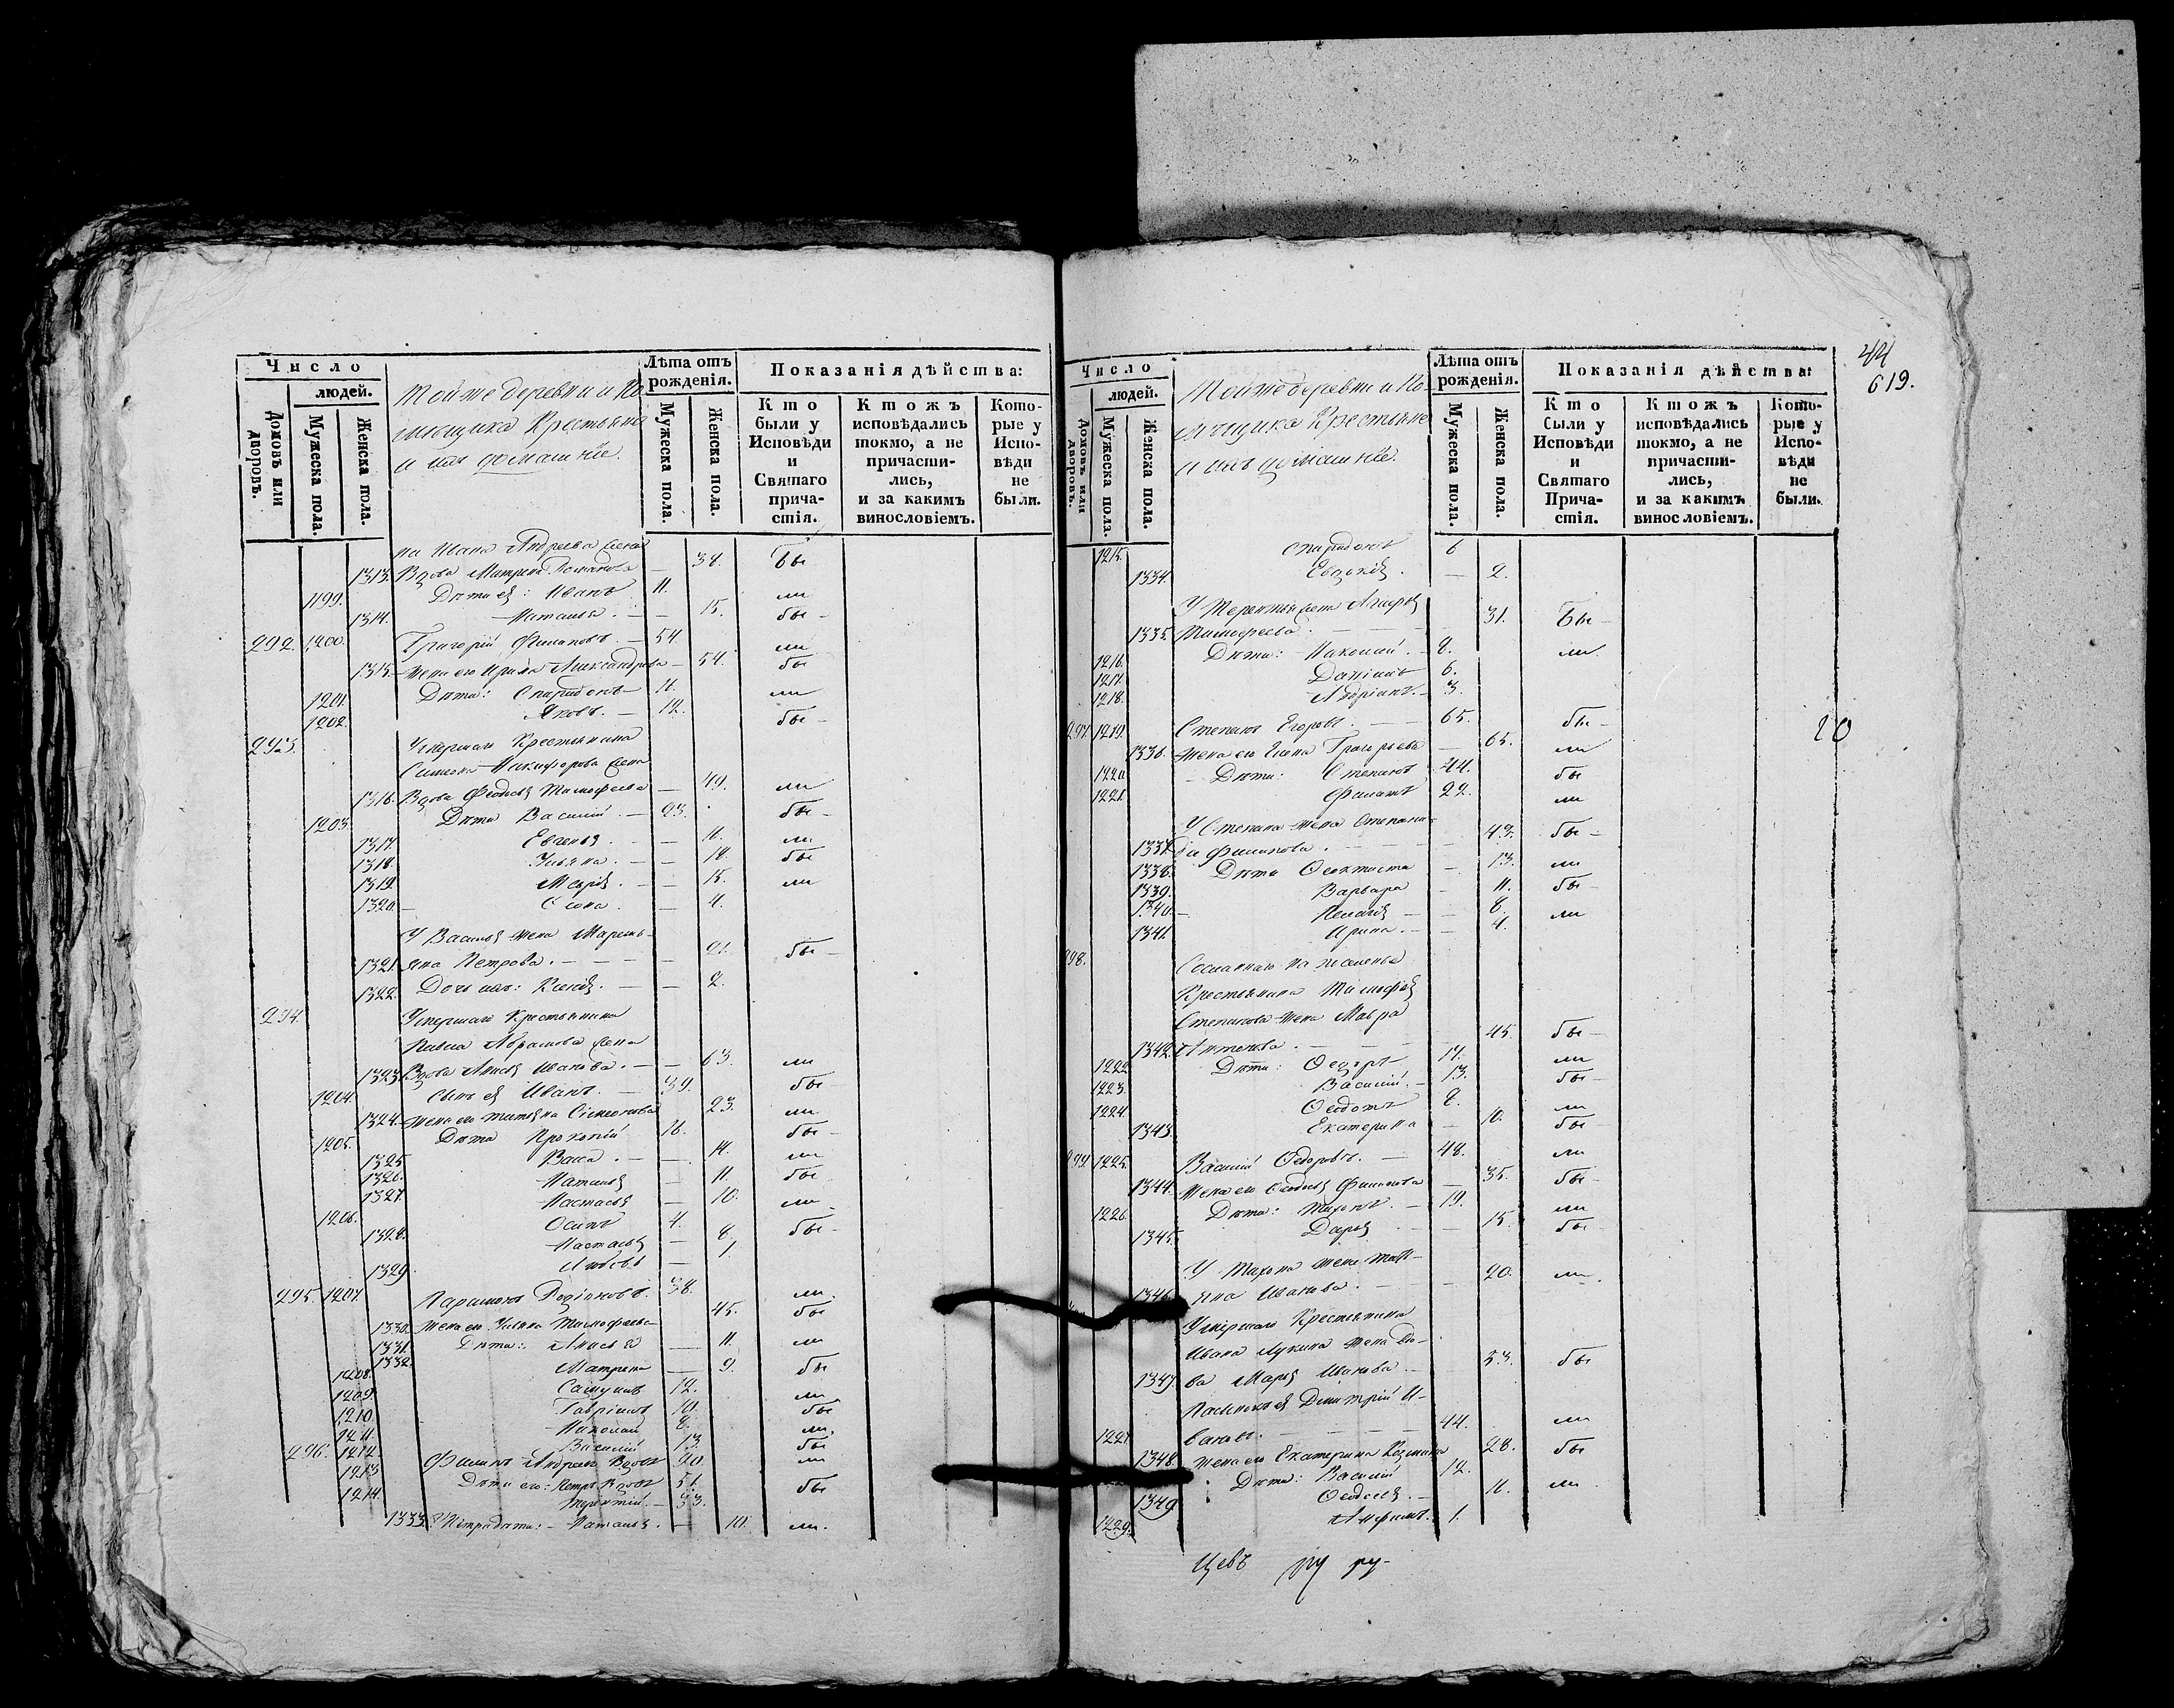 Число
людей.
Домовъ или дворовъ.
Мужеска пола.
Женска пола.
Тойже деревни и По-
мѣщика Крестьяне
и ихъ домашніе.
Лѣта отъ рожденія.
Мужеска пола.
Женска пола.
Показанія дѣйства:
Кто были у Исповѣди и Святаго причастія.
Ктожъ исповѣдались токмо, а не причастились, и за какимъ винословіемъ.
Которые у Исповѣди не были.
на Ивана Андреева жена
1313. Вдова Матрена Романова — 34. бы
1199. Дѣти ея: Иванъ 11. ли
1314. Наталья — 15. бы
292. 1200. Григорій Филиповъ. — 54. ли
1315. Жена его Ирина Александрова — 54. бы
1201. Дѣти: Спиридонъ — 16. ли
1202. Яковъ. — 12. бы
293. Умершаго Крестьянина
Симеона Никифорова жена
1316. Вдова Ѳеодосья Тимофеева — 49. ли
1203. Дѣти Василій — 23. бы
1317. Евгенья — 16. ли
1318. Ульяна — 18. бы
1319. Марья — 15. ли
1320. — 4.
У Василья жена Марѳ-
1321. Петрова. — 21. бы
1322. Дочь ихъ: Ксенія. — 2.
294. Умершаго Крестьянина
Павла Абрамова жена
1323. Вдова Анисья Иванова. — 63. ли
1204. Сынъ ея Иванъ. — 39. бы
1324. Жена его Татьяна Симеонова 23. ли
1205. Дѣти Прокопій 16. бы
1325 Васса. — 14. ли
1326. Наталья — 11. бы
1327. Настасья — 10. ли
1206. Осипъ 4. бы
1328. Настасья — 8.
1329 Любовь — 1.
295. 1207. Парамонъ Родіоновъ. 38. ли.
1330. Жена его Ульяна Тимофеева 45. бы
1331. Дѣти: Анисья — 11. ли
1332. Матрена — 9. бы
1208. Самуилъ 12. ли
1209 Гавріилъ 10. бы
1210 Николай 8. ли.
1211. Василій 13. бы
296. 1212. Филипъ Андреевъ Вдовъ 90. ли
1213 Дѣти его: Петръ Вдовъ 51. бы
1214. Терентій. — 33.
1333. У Петра дѣти: — Наталья. — 10. ли.
Число
людей.
Домовъ или дворовъ.
Мужеска пола.
Женска пола.
Тойже деревни и По-
мѣщика Крестьяне
и ихъ домашніе.
Лѣта отъ рожденія.
Мужеска пола.
Женска пола.
Показанія дѣйства:
Кто были у Исповѣди и Святаго Причастія.
Ктожъ исповѣдались токмо, а не причастились, и за какимъ винословіемъ.
Которые у Исповѣди не были.
44
619.
1215. Спиридонъ 6
1334. Евдокія. — 2.
У Терентья жена Агафья
1335. Тимофеева. — 31. бы
1216. Дѣти: Николай. — 8. ли
1217. Даніилъ 6.
1218. Андріанъ. — 3.
297. 1219. Степанъ Егоровъ. — 65. бы
20
1336. Жена его Елена Григорьева — 65. ли
1220. Дѣти: Степанъ 44. бы
1221. Филипъ 22. ли
У Степана жена Степани-
1337. да Филипова. — 43. бы
1338. Дѣти Ѳеоктиста — 13. ли
1339. Варвара — 11. бы
1340. Пелагія — 8. ли
1341. Ирина. — 4.
298. Сосланнаго на поселенье
Крестьянина Тимофея
Степанова жена Мавра
1342. — 45. бы
1222. Дѣти: Ѳедоръ 17. ли
1223. Василій. — 13. бы
1224. Ѳедотъ 8. ли
1343. Екатерина — 10. бы
299. 1225. Василій Ѳедоровъ. — 48. ли
1344. Жена его Ѳеодосья Филипова — 35. бы
1226. Дѣти: Тихонъ. — 19. ли
1345. Дарья — 15. бы
У Тихона жена Тать-
1346. яна Иванова. — 20. ли.
Умершаго Крестьянина
Ивана Лукина жена Вдо-
1347. ва Марья Иванова. — 53. бы
Пасынокъ ея Димитрій И-
1227. вановъ. — 44. ли
1348. Жена его Екатерина Козмина 28. бы
Дѣти: Василій 12.
1349 Ѳеодосія. — 11. ли
1229. Анфимъ. 1.